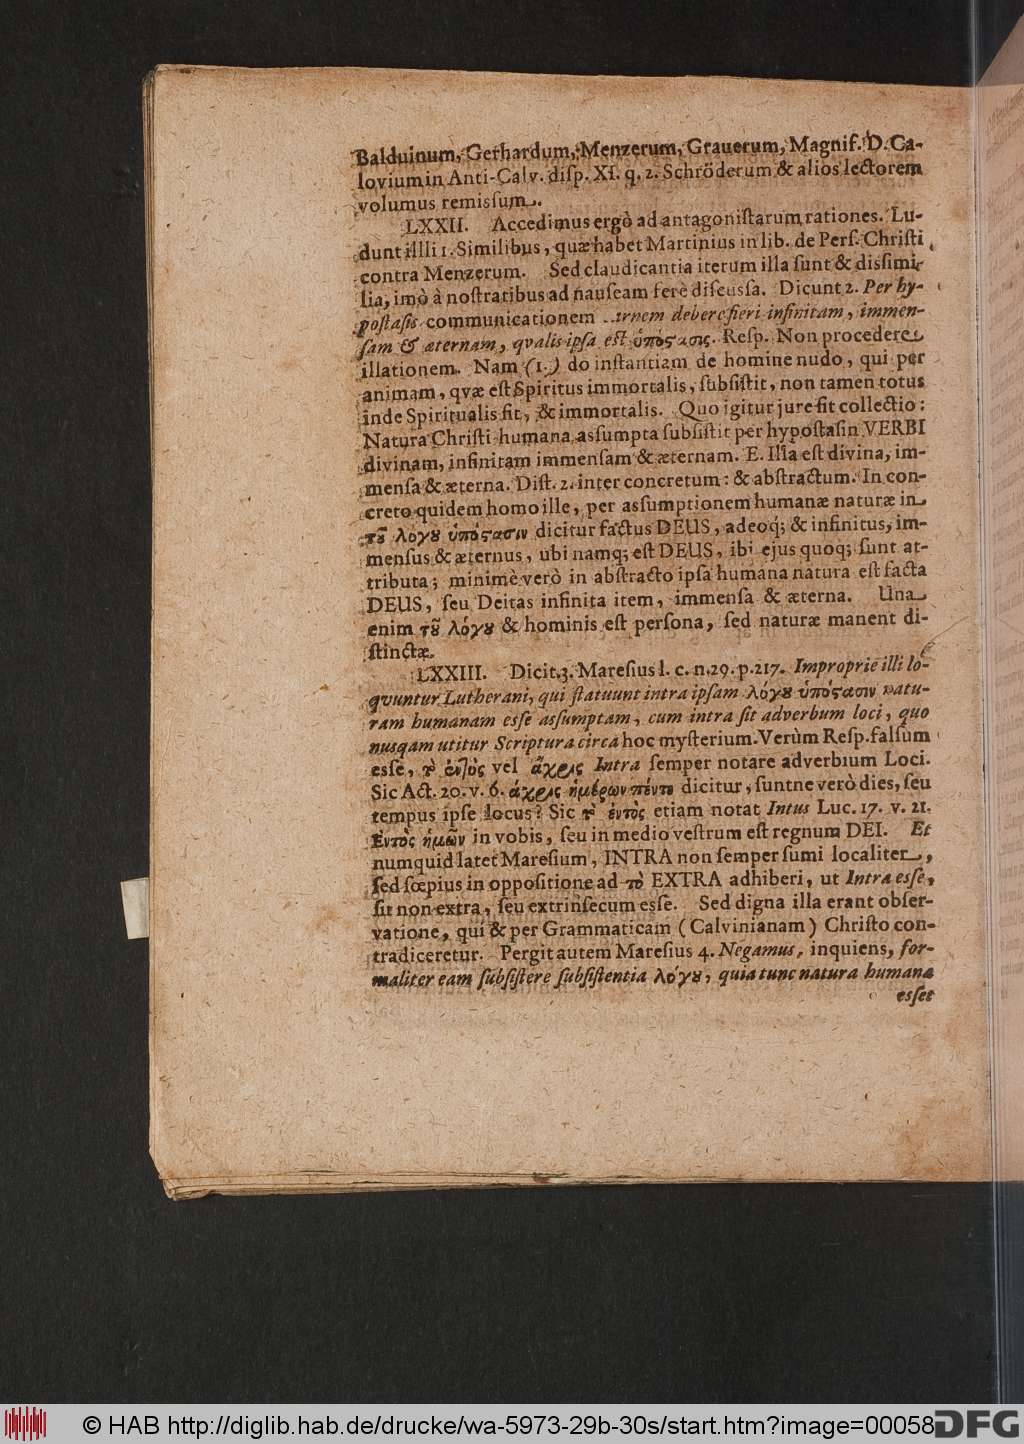 Balduinum, Gerhardum, Menzerum, Grauerum, Magnif. D. Ca-
lovium in Anti-Calv. diſp. XI. q. 2. Schröderum & alios lectorem
volumus remiſſum.
LXXII. Accedimus ergò ad antagoniſtarum rationes. Lu-
dunt illli 1. Similibus, quæ habet Martinius in lib. de Perſ. Chriſti
contra Menzerum. Sed claudicantia iterum illa ſunt & diſſimi-
lia, imò à noſtratibus ad nauſeam ferè diſcuſſa. Dicunt 2. Per hy-
poſtaſis communicationem ..rnem debere fieri infinitam, immen-
ſam & æternam, qvalis ipſa eſt ὑπόςασις. Reſp. Non procedere
illationem. Nam (1.) do inſtantiam de homine nudo, qui per
animam, qvæ eſt Spiritus immortalis, ſubſiſtit, non tamen totus
inde Spiritualis fit, & immortalis. Quo igitur jure fit collectio:
Natura Chriſti humana aſſumpta ſubſiſtit per hypoſtaſin VERBI
divinam, infinitam immenſam & æternam. E. Illa eſt divina, im-
menſa & æterna. Diſt. 2. inter concretum: & abſtractum. In con-
creto quidem homo ille, per aſſumptionem humanæ naturæ in
τȣ͂ λόγȣ ὑπόςασιν dicitur factus DEUS, adeoq; & infinitus, im-
menſus & æternus, ubi namq; eſt DEUS, ibi ejus quoq; ſunt at-
tributa; minimè verò in abſtracto ipſa humana natura eſt facta
DEUS, ſeu Deitas infinita item, immenſa & æterna. Una
enim τȣ͂ λόγȣ & hominis eſt perſona, ſed naturæ manent di-
ſtinctæ.
LXXIII. Dicit. 3. Mareſius l. c. n. 29. p. 217. Improprie illi lo-
qvuntur Lutherani, qui ſtatuunt intra ipſam λόγȣ ὑπόςασιν natu-
ram humanam eſſe aſſumptam, cum intra ſit adverbum loci, quo
nusqam utitur Scriptura circa hoc myſterium. Verùm Reſp. falſum
eſſe, τὸ ἐντὸς vel ἄχρις Intra ſemper notare adverbium Loci.
Sic Act. 20. v. 6. ἄχρις ἡμέρων πέντε dicitur, ſuntne verò dies, ſeu
tempus ipſe locus? Sic τὸ ἐντὸς etiam notat Intus Luc. 17. v. 21.
Ἐντὸς ἡμῶν in vobis, ſeu in medio veſtrum eſt regnum DEI. Et
numquid latet Mareſium, INTRA non ſemper ſumi localiter,
ſed ſœpius in oppoſitione ad τὸ EXTRA adhiberi, ut Intra eſſe,
ſit non extra, ſeu extrinſecum eſſe. Sed digna illa erant obſer-
vatione, qui & per Grammaticam (Calvinianam) Chriſto con-
tradiceretur. Pergit autem Mareſius 4. Negamus, inquiens, for-
maliter eam ſubſiſtere ſubſiſtentia λόγȣ, quia tunc natura humana
eſſet
© HAB http://diglib.hab.de/drucke/wa-5973-29b-30s/start.htm?image=00058
DFG